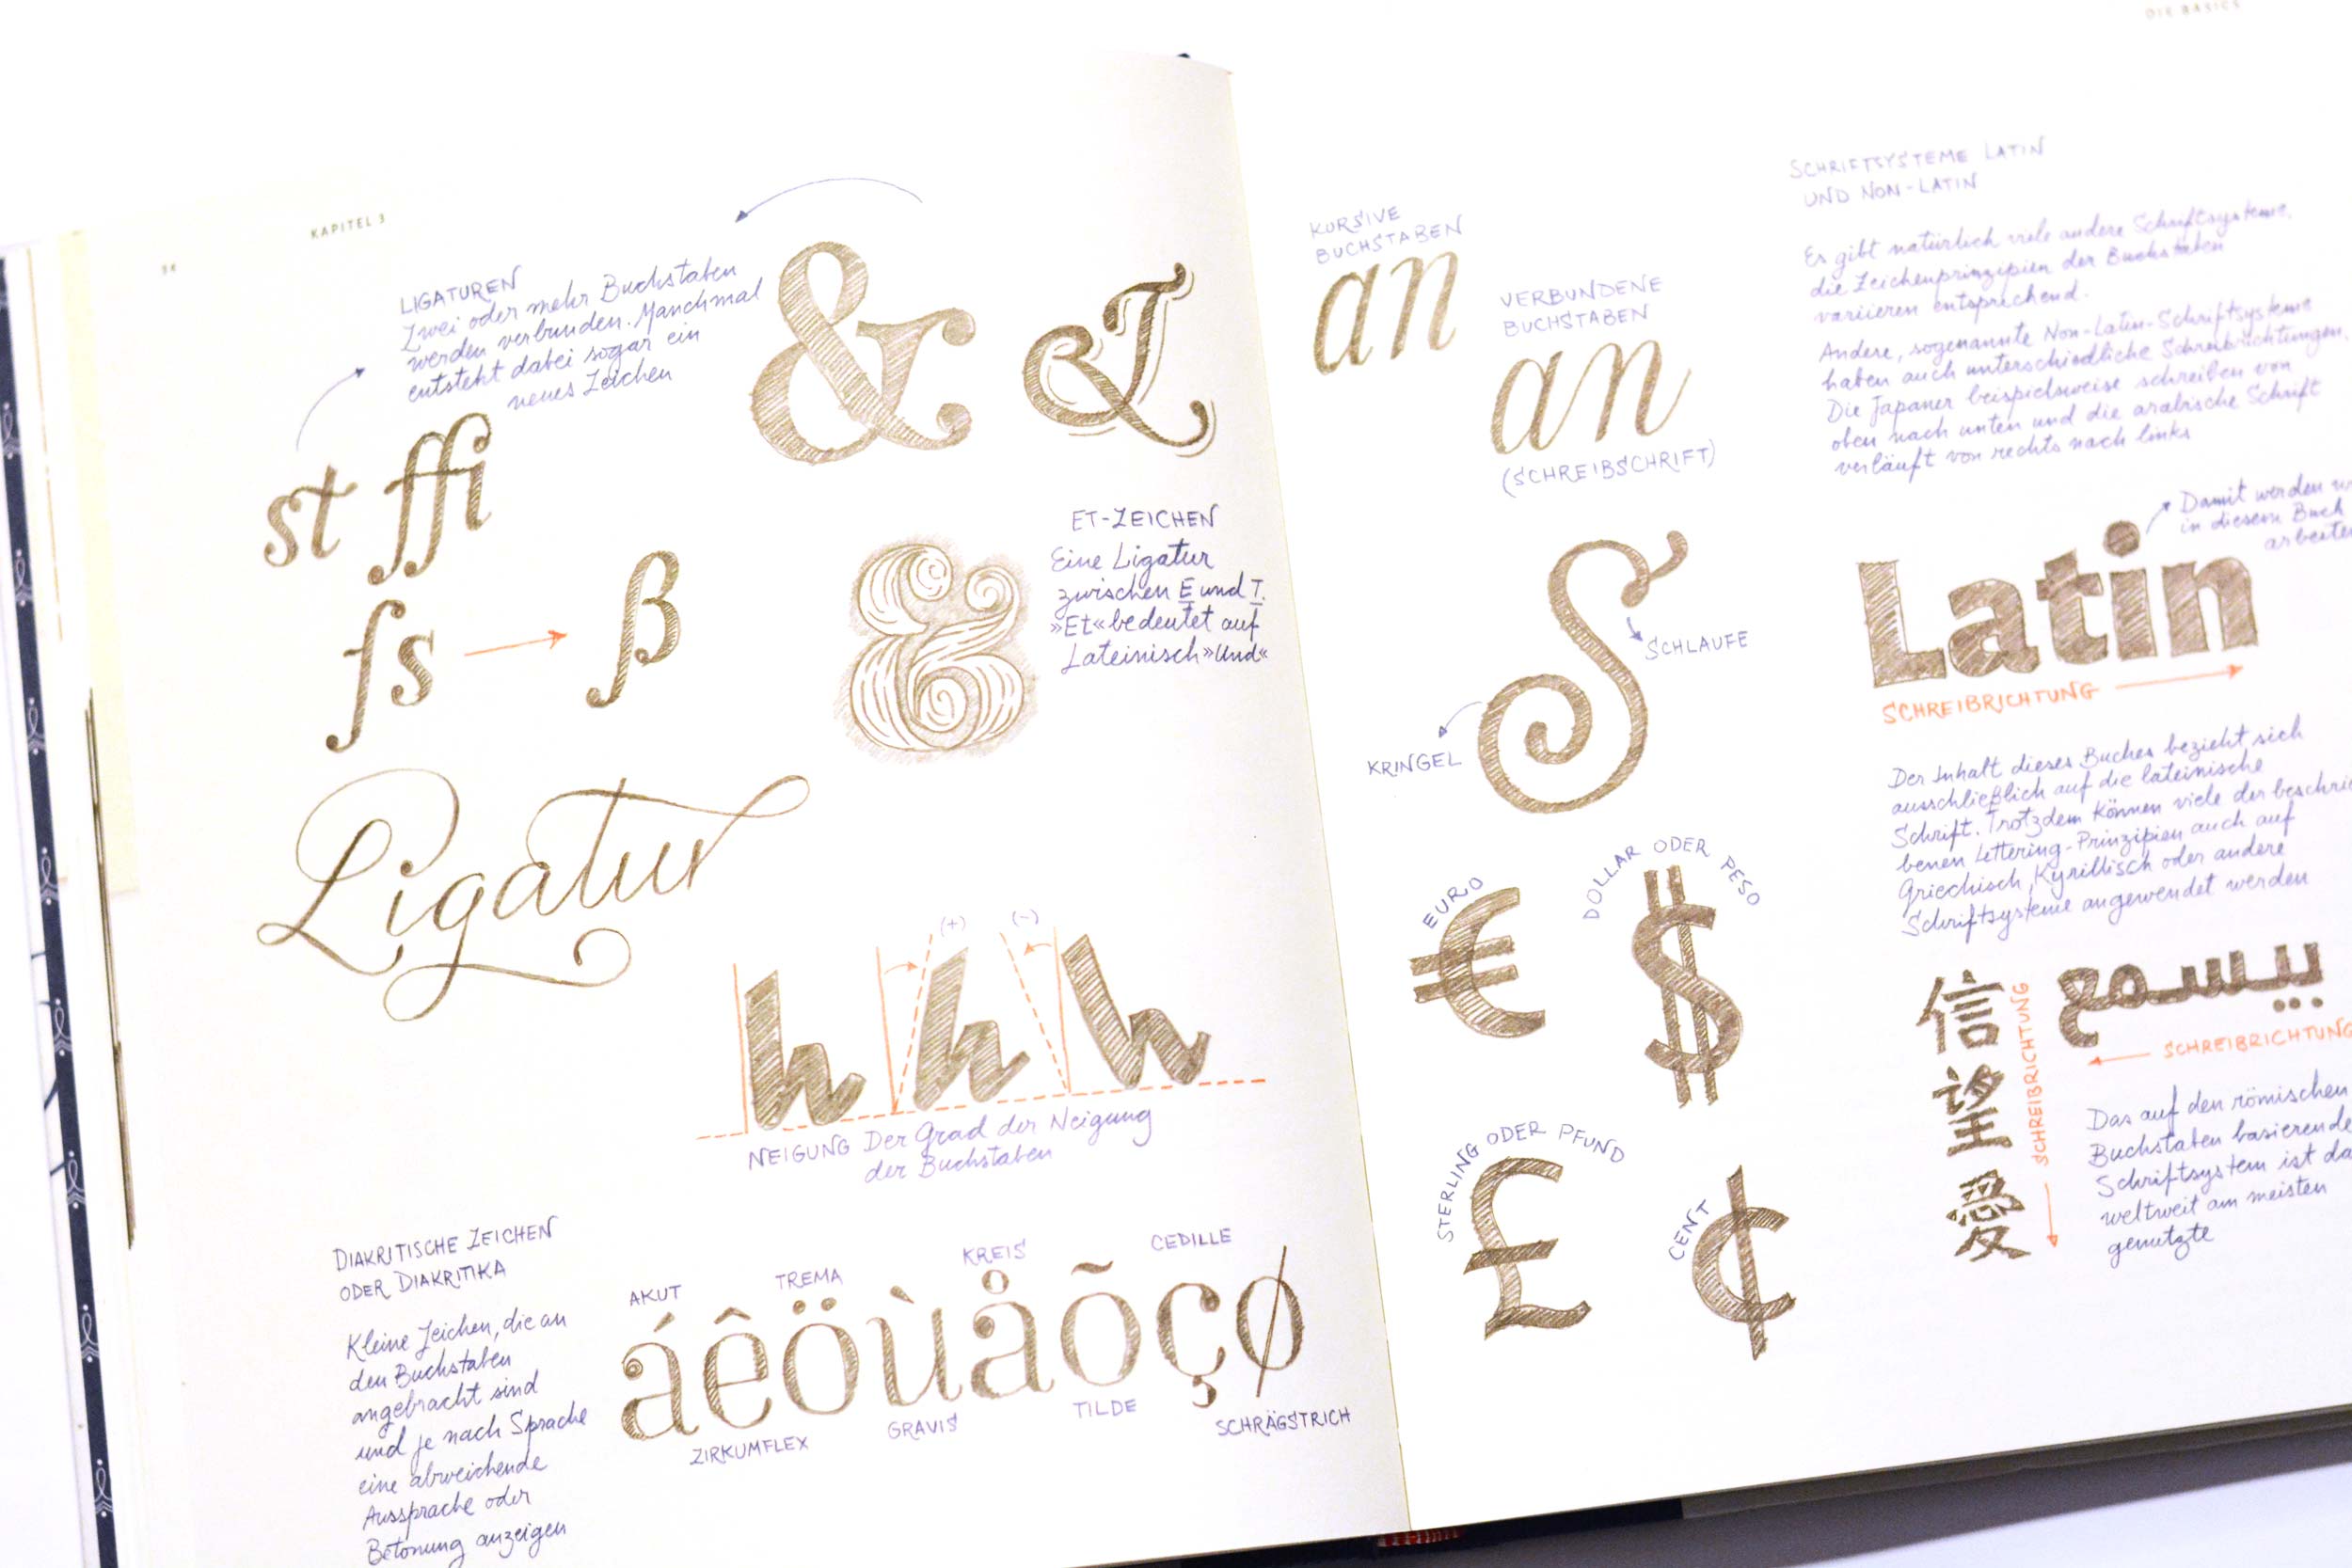 KAPITEL 3
LIGATUREN
Zwei oder mehr Buchstaben
werden verbunden. Manchmal
entsteht dabei sogar ein
neues Zeichen
& &
st ffi
ſs ß
&
ET-ZEICHEN
Eine Ligatur
zwischen E und T.
»Et« bedeutet auf
Lateinisch »Und«
Ligatur
(+) (-)
h h h
NEIGUNG Der Grad der Neigung
der Buchstaben
DIAKRITISCHE ZEICHEN
ODER DIAKRITIKA
Kleine Zeichen, die an
den Buchstaben
angebracht sind
und je nach Sprache
eine abweichende
Aussprache oder
Betonung anzeigen
AKUT TREMA KREIS CEDILLE
áêöùåõçø
ZIRKUMFLEX GRAVIS TILDE SCHRÄGSTRICH
DIE BASICS
KURSIVE
BUCHSTABEN
an
VERBUNDENE
BUCHSTABEN
an
(SCHREIBSCHRIFT)
S
SCHLAUFE
KRINGEL
EURO
€
DOLLAR ODER PESO
$
STERLING ODER PFUND
£
CENT
¢
SCHRIFTSYSTEME LATIN
UND NON-LATIN
Es gibt natürlich viele andere Schriftsysteme,
die Zeichenprinzipien der Buchstaben
variieren entsprechend.
Andere, sogenannte Non-Latin-Schriftsysteme
haben auch unterschiedliche Schreibrichtungen.
Die Japaner beispielsweise schreiben von
oben nach unten und die arabische Schrift
verläuft von rechts nach links
Damit werden
in diesem Buch
arbeite
Latin
SCHREIBRICHTUNG
Der Inhalt dieses Buches bezieht sich
ausschließlich auf die lateinische
Schrift. Trotzdem können viele der beschrie
benen Lettering-Prinzipien auch auf
Griechisch, Kyrillisch oder andere
Schriftsysteme angewendet werden
信
望
愛
SCHREIBRICHTUNG
SCHREIBRICHTUNG
Das auf den römischen
Buchstaben basierende
Schriftsystem ist da
weltweit am meisten
genutzte